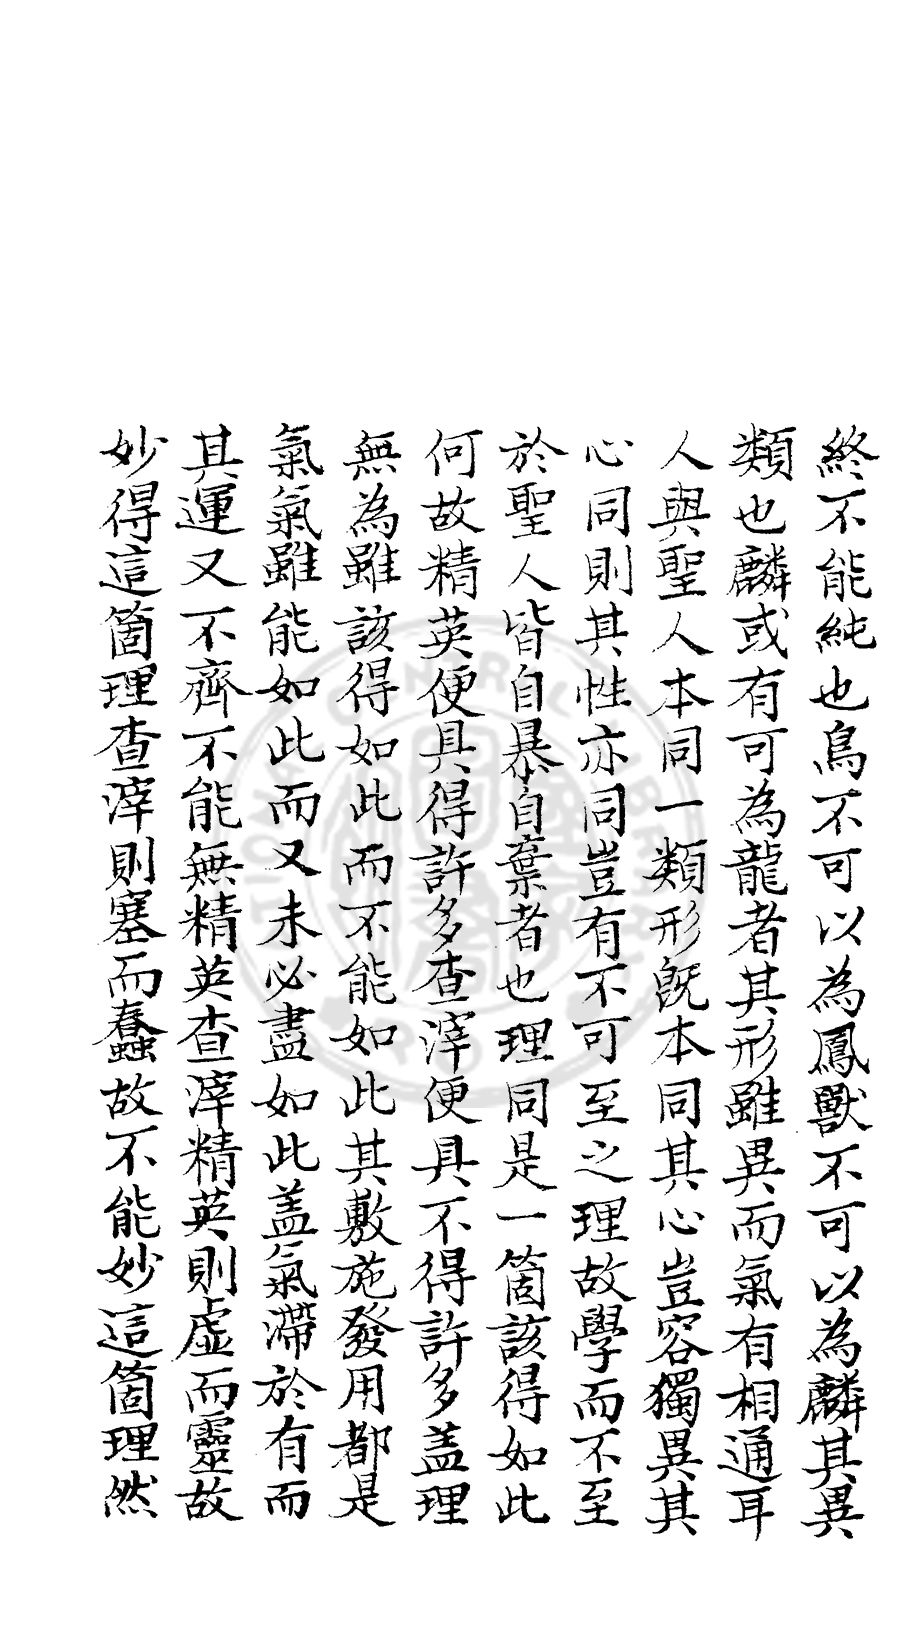 終不能純也鳥不可以為鳳獸不可以為麟其異
類也麟或有可為龍者其形雖異而氣有相通耳
人與聖人本同一類形旣本同其心豈容獨異其
心同則其性亦同豈有不可至之理故學而不至
於聖人皆自暴自棄者也理同是一箇該得如此
何故精英便具得許多查滓便具不得許多盖理
無為雖該得如此而不能如此其敷施發用都是
氣氣雖能如此而又未必盡如此盖氣滯於有而
其運又不齊不能無精英查滓精英則虛而靈故
妙得這箇理查滓則塞而蠢故不能妙這箇理然